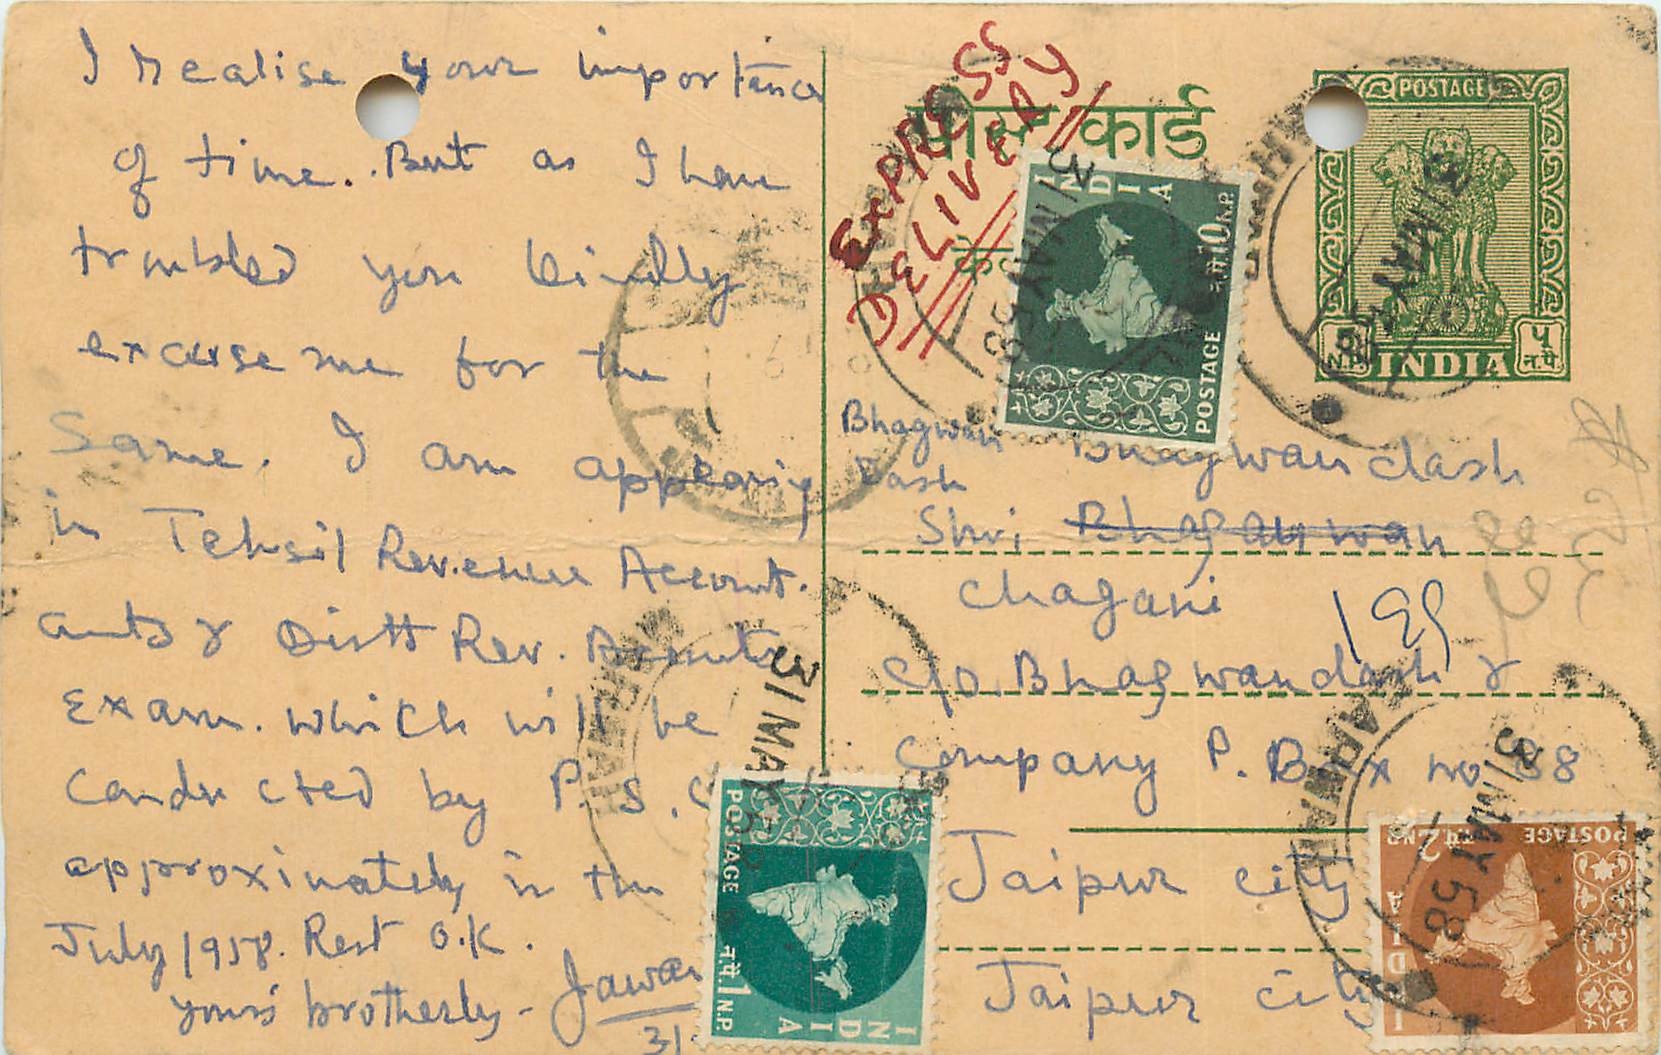 I realise your importance
of time. But as I have
troubled you kindly
excuse me for the
Same. I am appearing
in Tehsil Revenue Account.
ants & Distt Rev. Accounts
Exam. which will be
Conducted by P. S. C
approximately in the
July 1958. Rest O.K.
yours brotherly - Jawar
31
EXPRESS
DELIVERY
पोस्ट कार्ड
के
POSTAGE
INDIA
N.P.
५
न.पै.
INDIA
न.पै.
10 N.P.
POSTAGE
31 MAY 58
31 MAY 58
Bhagwan
Dash
Bhagwandash
Shri Bhagwan
Chagani
199
C/o. Bhagwandash &
Company P. Box no. 88
Jaipur city
Jaipur city
31 MAY 58
POSTAGE
न.पै.
1 N.P.
INDIA
31 MAY 58
POSTAGE
न.पै.
2 NP
INDIA